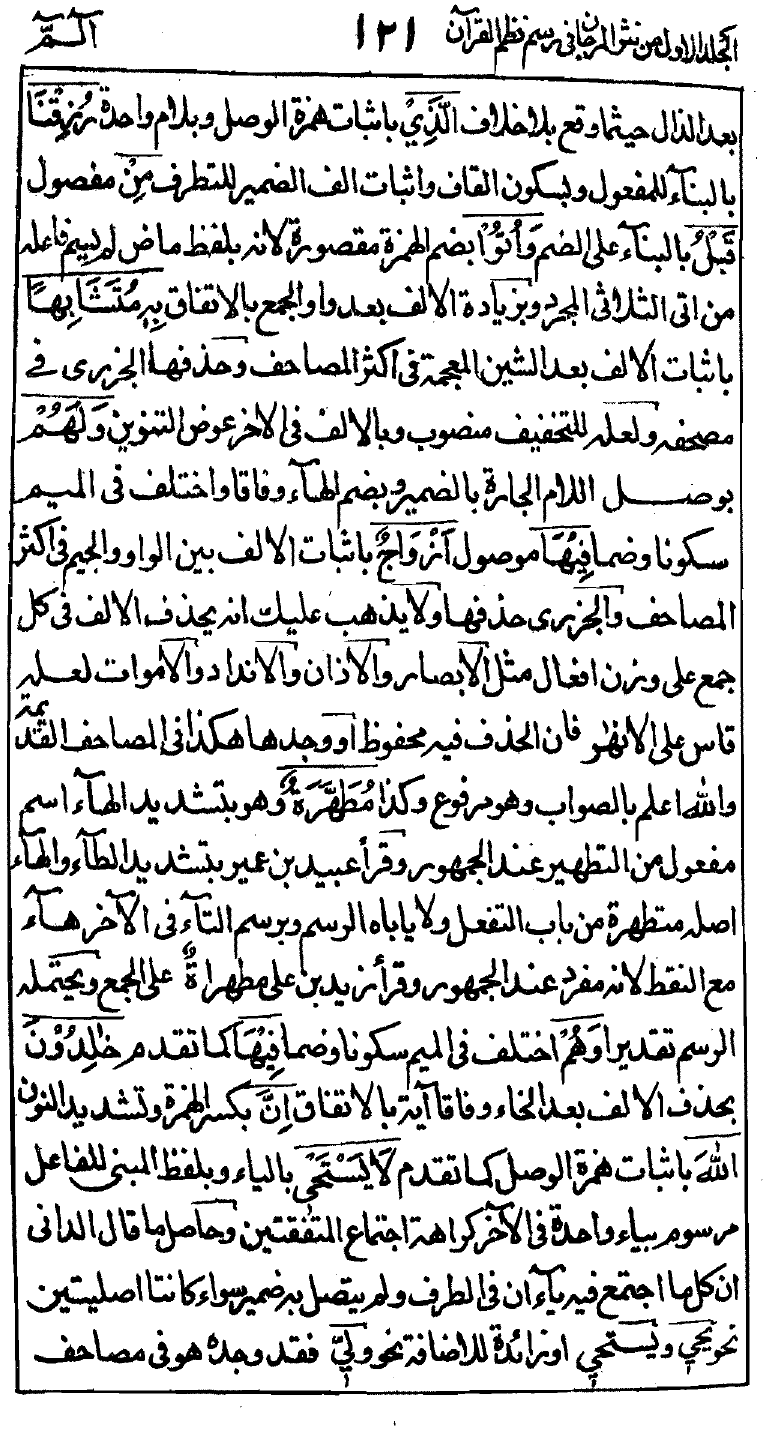 الجلد الاول من نثر المرجان في رسم نظم القرآن ١٢١ آلـمّ
بعد الذال حيثما وقع بلا خلاف الَّذِيْ باثبات همزة الوصل وبلام واحدة رُزِقْنَا
بالبناء للمفعول وبسكون القاف واثبات الف الضمير للتطرف مِنْ مفصول
قَبْلُ بالبناء على الضم وَأُتُوْا بضم الهمزة مقصورة لانه بلفظ ماض لم يسم فاعله
من اتى الثلاثي المجرد وبزيادة الالف بعد واو الجمع بالاتفاق بِهٖ مُتَشَابِهًا
باثبات الالف بعد الشين المعجمة في اكثر المصاحف وحذفها الجزرى في
مصحفه ولعله للتخفيف منصوب وبالالف في الاخر عوض التنوين وَلَهُمْ
بوصل اللام الجارة بالضمير وبضم الهآء وفاقا واختلف فى الميم
سكونا وضما فِيْهَا موصول اَزْوَاجٌ باثبات الالف بين الواو والجيم في اكثر
المصاحف والجزرى حذفها ولا يذهب عليك انه يحذف الالف في كل
جمع على وزن افعال مثل الابصار والاذان والانداد والاموات لعله
قاس على الانهٰر فان الحذف فيه محفوظ او وجدها هكذا فى المصاحف القديمة
والله اعلم بالصواب وهو مرفوع وكذا مُطَهَّرَةٌ وهو بتشديد الهآء اسم
مفعول من التطهير عند الجمهور وقرأ عبيد بن عمير بتشديد الطآء والهآء
اصله متطهرة من باب التفعل ولا ياباه الرسم وبرسم التآء فى الآخر هآء
مع النقط لانه مفرد عند الجمهور وقرأ زيد بن على مطهراةٌ على الجمع ويحتمله
الرسم تقديرا وَهُمْ اختلف فى الميم سكونا وضما فِيْهَا كما تقدم خٰلِدُوْنَ
بحذف الالف بعد الخاء وفاقا آية بالاتفاق اِنَّ بكسر الهمزة وتشديد النون
اللّٰهَ باثبات همزة الوصل كما تقدم لَا يَسْتَحْيٖ بالياء وبلفظ المبنى للفاعل
مرسوم بياء واحدة فى الآخر كراهة اجتماع المتفقتين وحاصل ما قال الدانى
ان كل ما اجتمع فيه يآءان فى الطرف ولم يتصل به ضمير سواء كانتا اصليتين
نحو يحي ويستحي او زائدة للاضافة نحو وليّ فقد وجده هو فى مصاحف